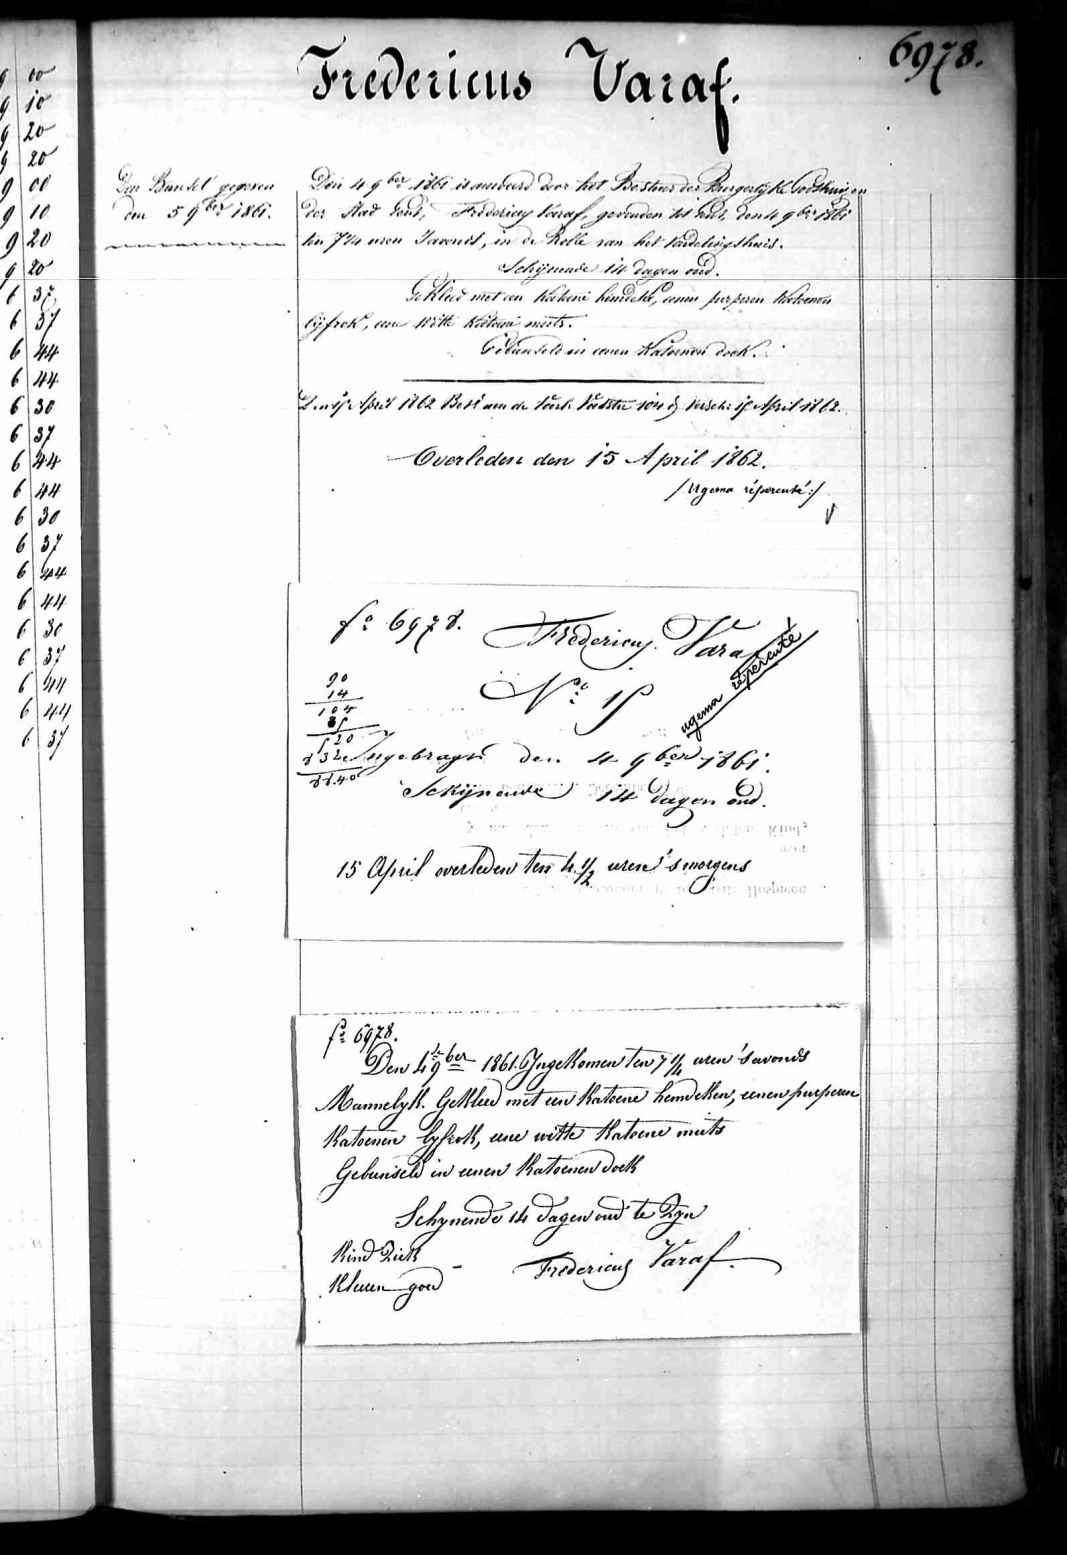 6978.
Fredericus Varaf.
Den Bundel gegeven
den 5 9ber 1861.
Den 4 9ber 1861 is aanveerd door het Bestuer der Burgerlyke Godshuizen
der Stad Gent, Fredericus Varaf, gevonden tot Gent, den 4 9ber 1861
ten 7 1/4 uren 's avonds, in de Rolle van het vondelingshuis.
Schijnende 14 dagen oud.
Gekleed met een katoene hemdeke, eenen purperen katoenen
lyfrok, eene witte katoene muts.
Gebunseld in eenen katoenen doek.
April 1862 April 1862.
Overleden den 15 April 1862.
fo 6978.
Fredericus Varaf
No 15
90
14
Ingebragt den 4 9ber 1861.
Schijnende 14 dagen oud.
15 April overleden ten 4 1/2 uren 's morgens
fo 6978.
Den 4 9ber 1861. Ingekomen ten 7 1/4 uren 's avonds
Mannelyk. Gekleed met een katoene hemdeken, eenen purperen
katoenen lyfrok, eene witte katoene muts
Gebunseld in eenen katoenen doek
Schynende 14 dagen oud te zyn
Kind Ziek
Fredericus Varaf.
Kleeren goed
9 00
9 10
9 20
9 20
9 00
9 10
9 20
9 20
6 37
6 37
6 44
6 44
6 30
6 37
6 44
6 44
6 30
6 37
6 44
6 44
6 30
6 37
6 44
6 44
6 37